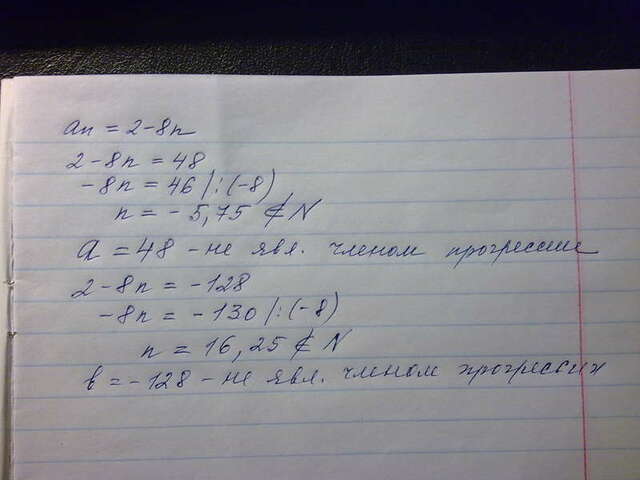 an = 2-8n
2-8n = 48
-8n = 46 |:(-8)
n = -5,75 ∉ N
a = 48 - не явл. членом прогрессии
2-8n = -128
-8n = -130 |:(-8)
n = 16,25 ∉ N
b = -128 - не явл. членом прогрессии